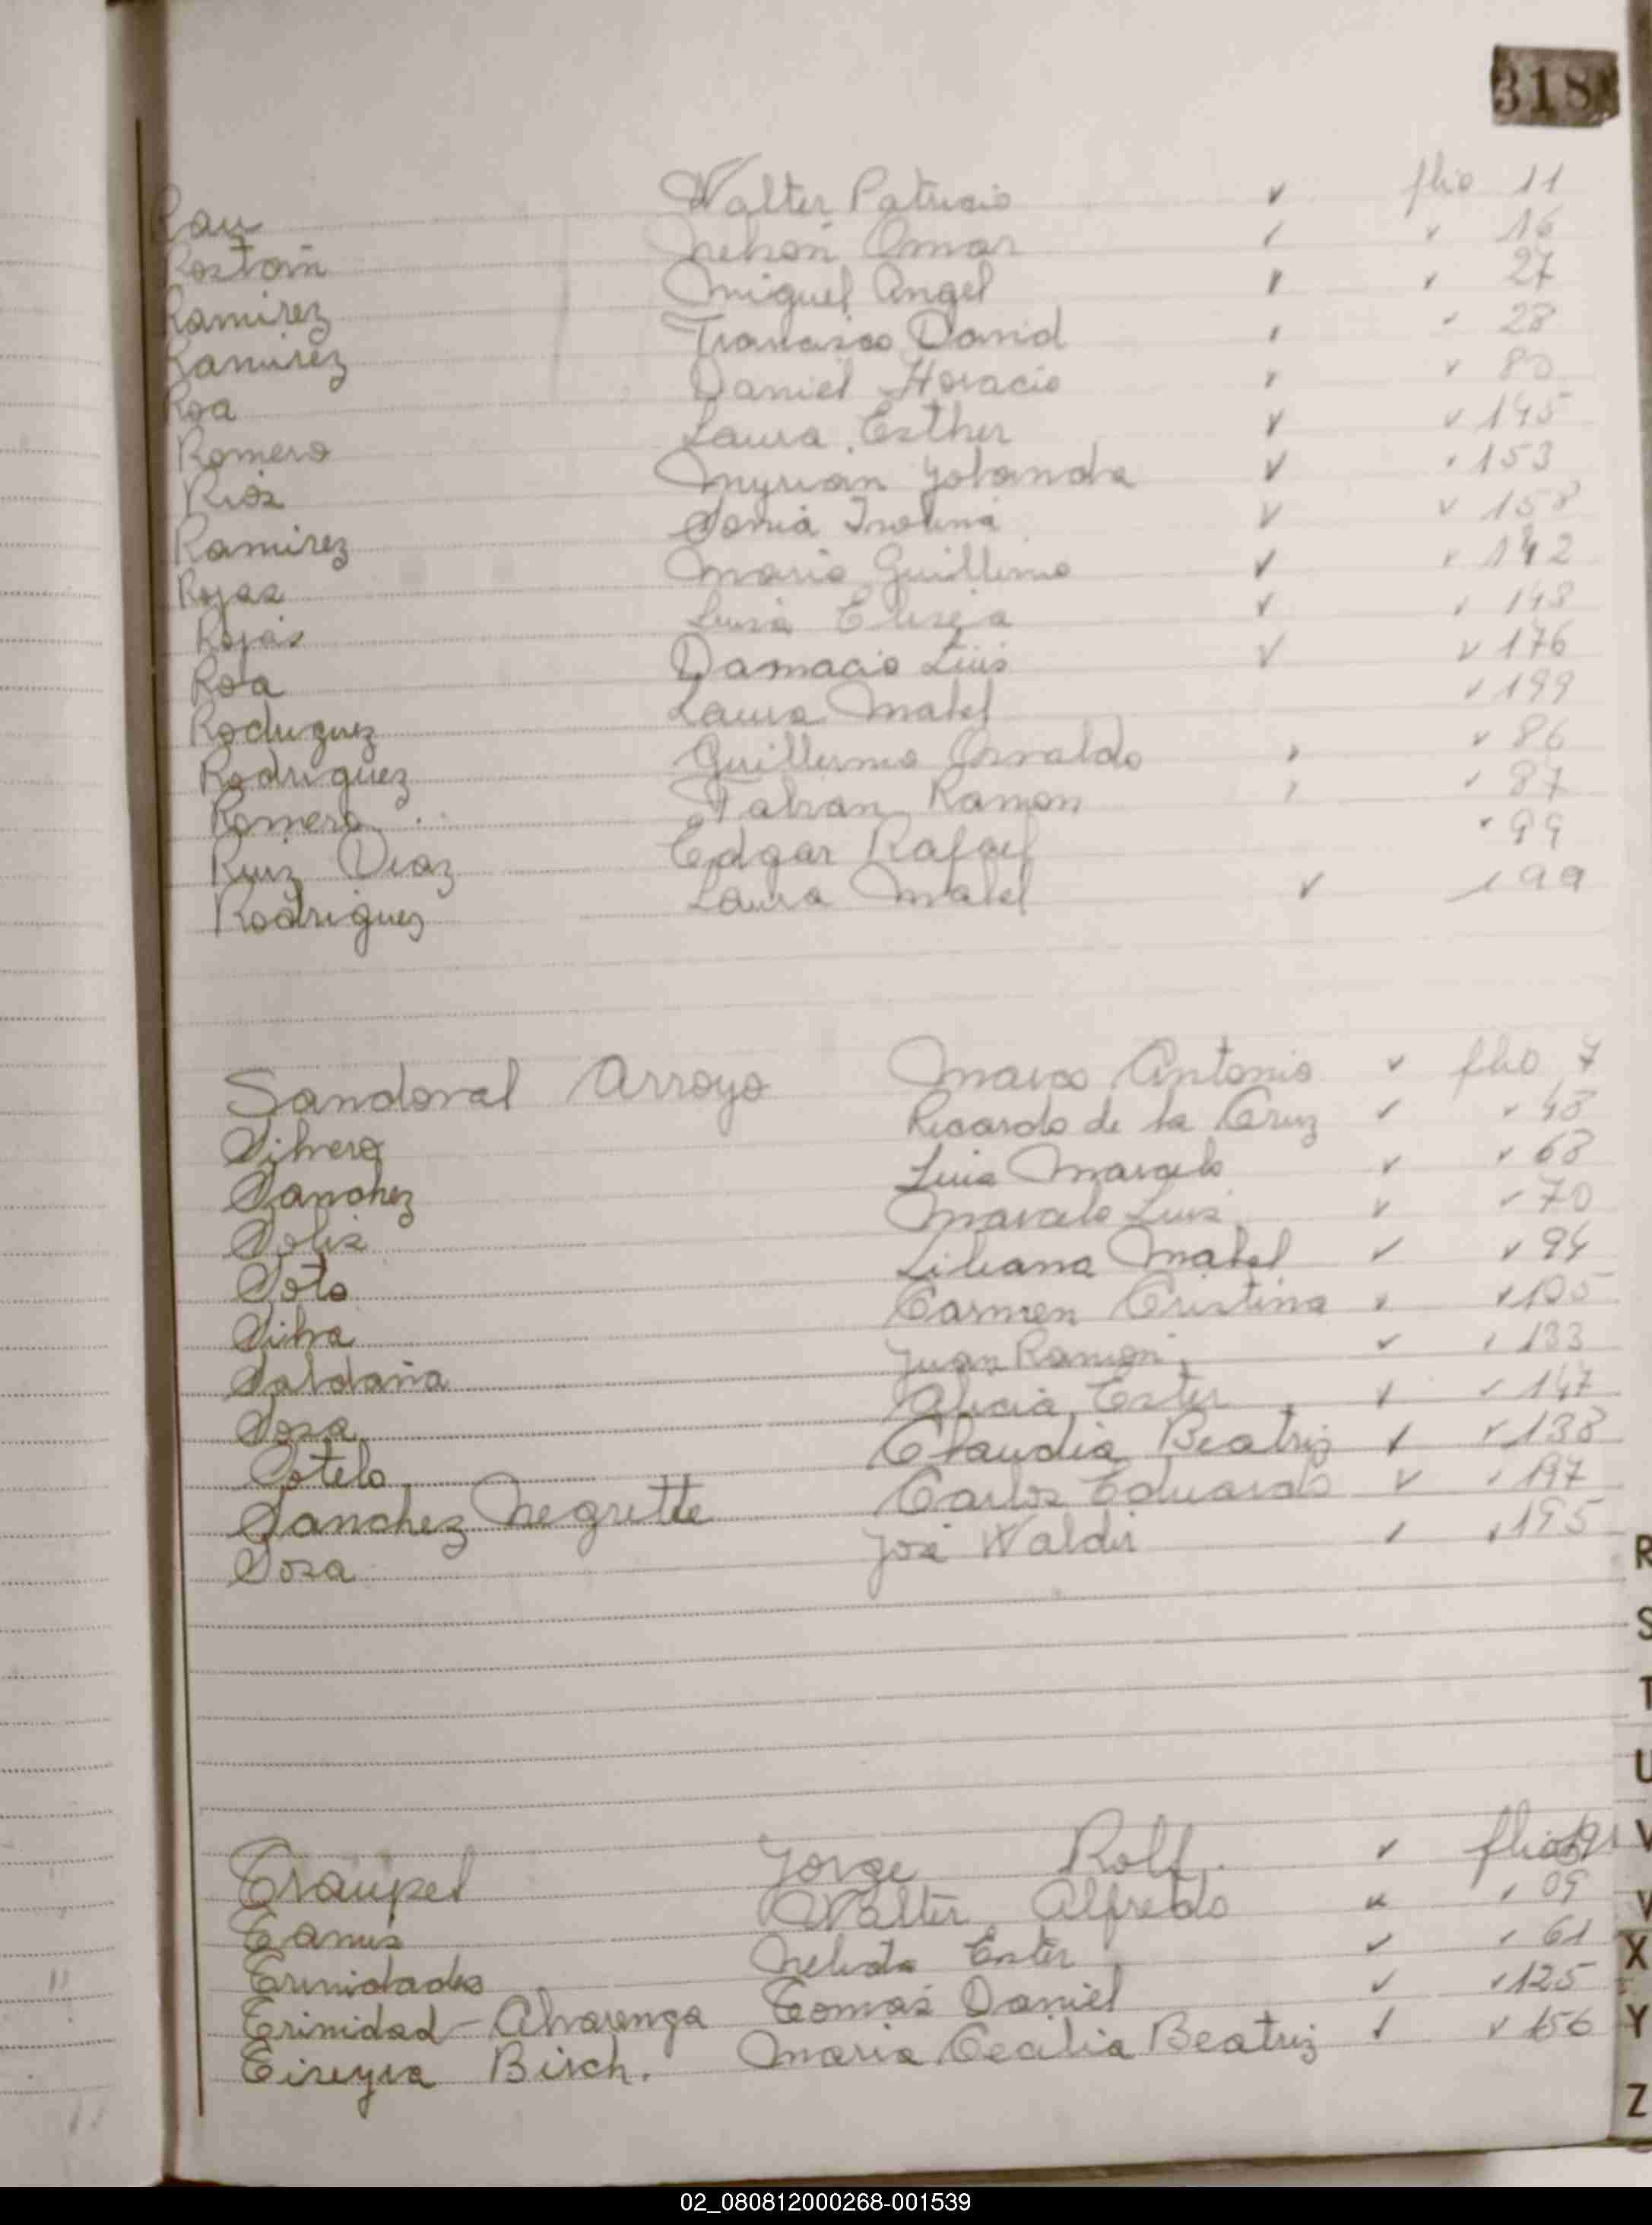 318
Rau Walter Patricio ✓ flio 11
Rostoin Nelson Omar ✓ ✓ 16
Ramirez Miguel Angel ✓ ✓ 27
Ramirez Francisco David ✓ ✓ 28
Roa Daniel Horacio ✓ ✓ 80
Romero Laura Esther ✓ ✓ 145
Rios Myrian Yolanda ✓ ✓ 153
Ramirez Sonia ✓ ✓ 158
Rojas Mario Guillermo ✓ ✓ 142
Rojas Luisa Elisea ✓ ✓ 148
Roa Damacio Luis ✓ ✓ 176
Rodriguez Laura Mabel ✓ 199
Rodriguez Guillermo Osvaldo ✓ ✓ 86
Romero Fabian Ramon ✓ ✓ 87
Ruiz Diaz Edgar Rafael ✓ 99
Rodriguez Laura Mabel ✓ 199
Sandoval Arroyo Marco Antonio ✓ flio 7
Silvero Ricardo de la Cruz ✓ ✓ 48
Sanchez Luis Marcelo ✓ ✓ 68
Solis Marcelo Luis ✓ ✓ 70
Soto Liliana Mabel ✓ ✓ 94
Silva Carmen Cristina ✓ ✓ 105
Saldaña Juan Ramon ✓ ✓ 133
Sosa Alicia Ester ✓ ✓ 147
Sotelo Claudia Beatriz ✓ ✓ 138
Sanchez Negrette Carlos Eduardo ✓ ✓ 197
Sosa José Waldir ✓ ✓ 195
Traupel Jorge Rolf ✓ flio
Tanus Walter Alfredo ✓ ✓ 09
Trinidades Nelida Ester ✓ ✓ 61
Trinidad - Alvarenga Tomas Daniel ✓ ✓ 125
Tireyra Birch. Maria Cecilia Beatriz ✓ ✓ 156
R
S
T
U
V
V
X
Y
Z
02_080812000268-001539